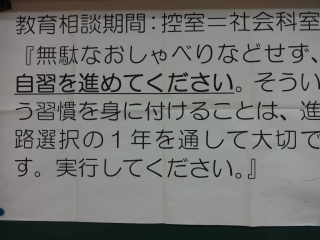 教育相談期間：控室＝社会科室
『無駄なおしゃべりなどせず、
自習を進めてください。そうい
う習慣を身に付けることは、進
路選択の１年を通して大切で
す。実行してください。』